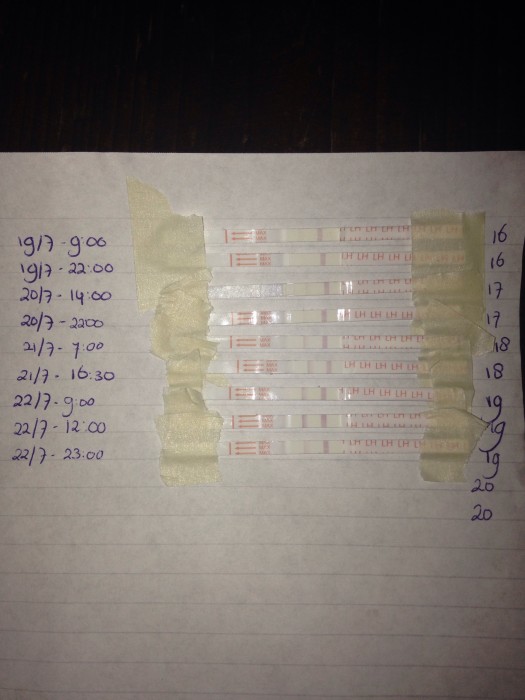 19/7 - 9:00 MAX MAX LH LH LH LH LH 16
19/7 - 22:00 MAX MAX LH LH LH LH LH LH LH 16
20/7 - 14:00 LH LH LH LH 17
20/7 - 2200 MAX MAX LH LH LH LH LH LH 17
21/7 - 7:00 MAX MAX LH LH LH LH LH 18
21/7 - 16:30 MAX MAX LH LH LH LH LH 18
22/7 - 9:00 MAX MAX LH LH LH LH LH LH 19
22/7 - 12:00 MAX MAX LH LH LH LH LH LH 19
22/7 - 23:00 MAX MAX LH LH LH LH LH 19
20
20